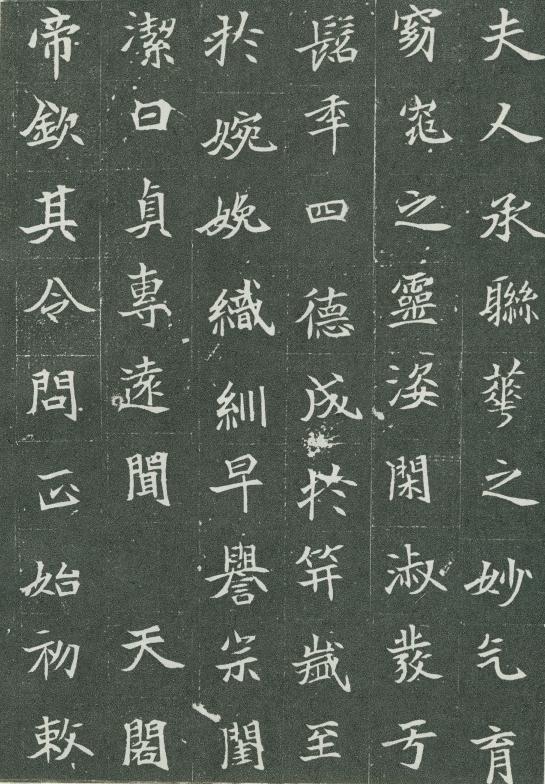 夫人承聯華之妙气育
窈窕之靈姿閑淑發于
髫年四德成扵笄歲至
扵婉娩織紃早譽宗閨
潔曰貞專遠聞　天閣
帝欽其令問正始初敕